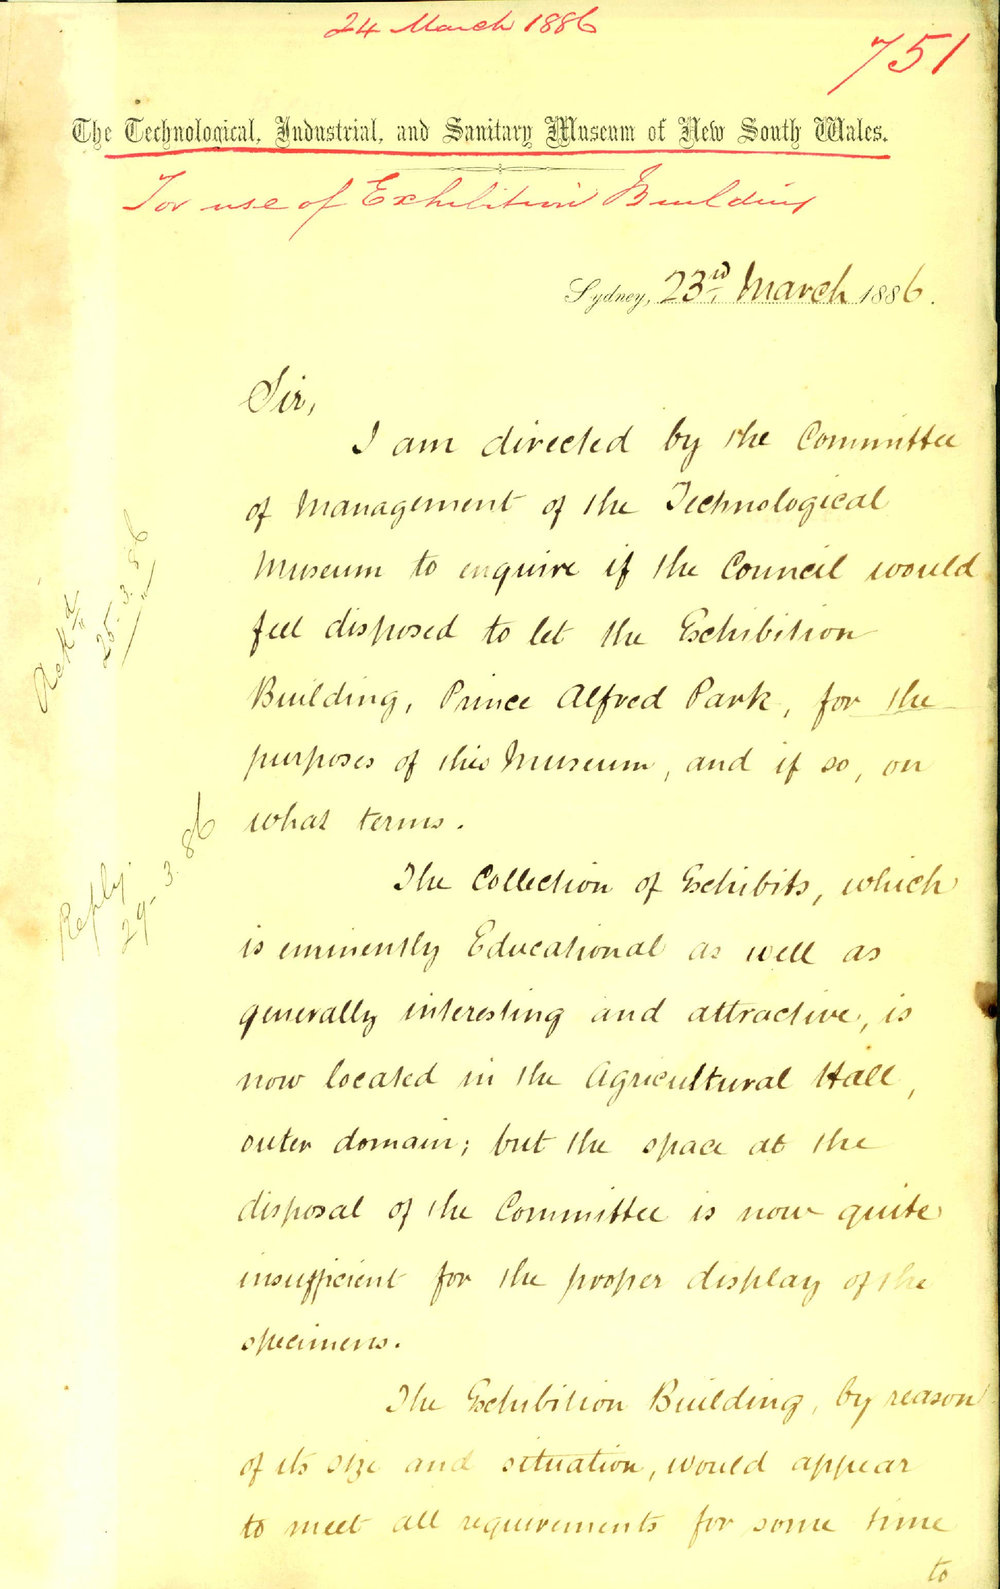 24 March 1886
751
The Technological, Industrial, and Sanitary Museum of New South Wales.
For use of Exhibition Building
Sydney, 23rd March 1886.
Sir,
I am directed by the Committee
of Management of the Technological
Museum to enquire if the Council would
feel disposed to let the Exhibition
Building, Prince Alfred Park, for the
purposes of this Museum, and if so, on
what terms.
Ackd
25.3.86
Reply.
29.3.86
The Collection of Exhibits, which
is eminently Educational as well as
generally interesting and attractive, is
now located in the Agricultural Hall,
outer domain; but the space at the
disposal of the Committee is now quite
insufficient for the proper display of the
specimens.
The Exhibition Building, by reason
of its size and situation, would appear
to meet all requirements for some time
to